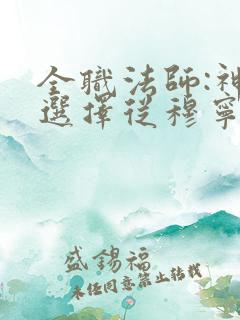 全職法師:神
選擇從穆寧
盛錫福
未经同意禁止转载